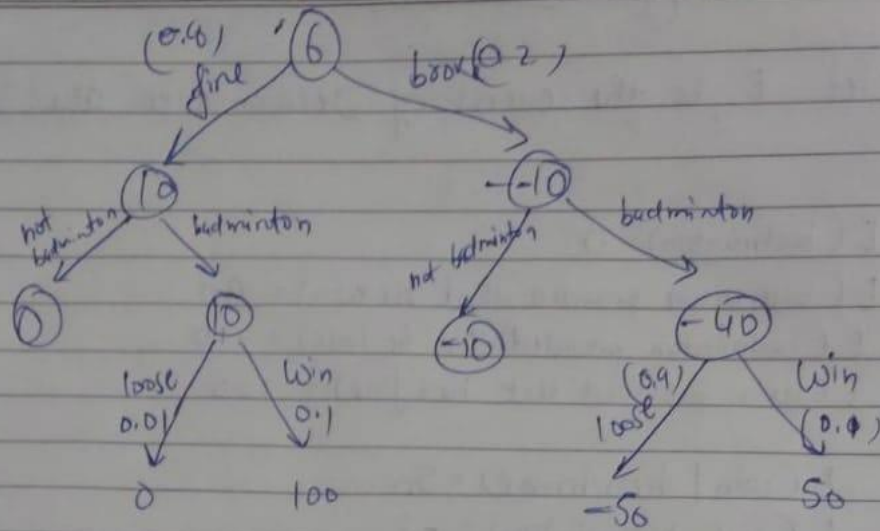 (0.8) 6 brok(0.2)
fine
10 --10
not badminton badminton not badminton badminton
0 10 -10 -40
loose 0.01 Win 0.1 (0.9) loose Win (0.1)
0 100 -50 50